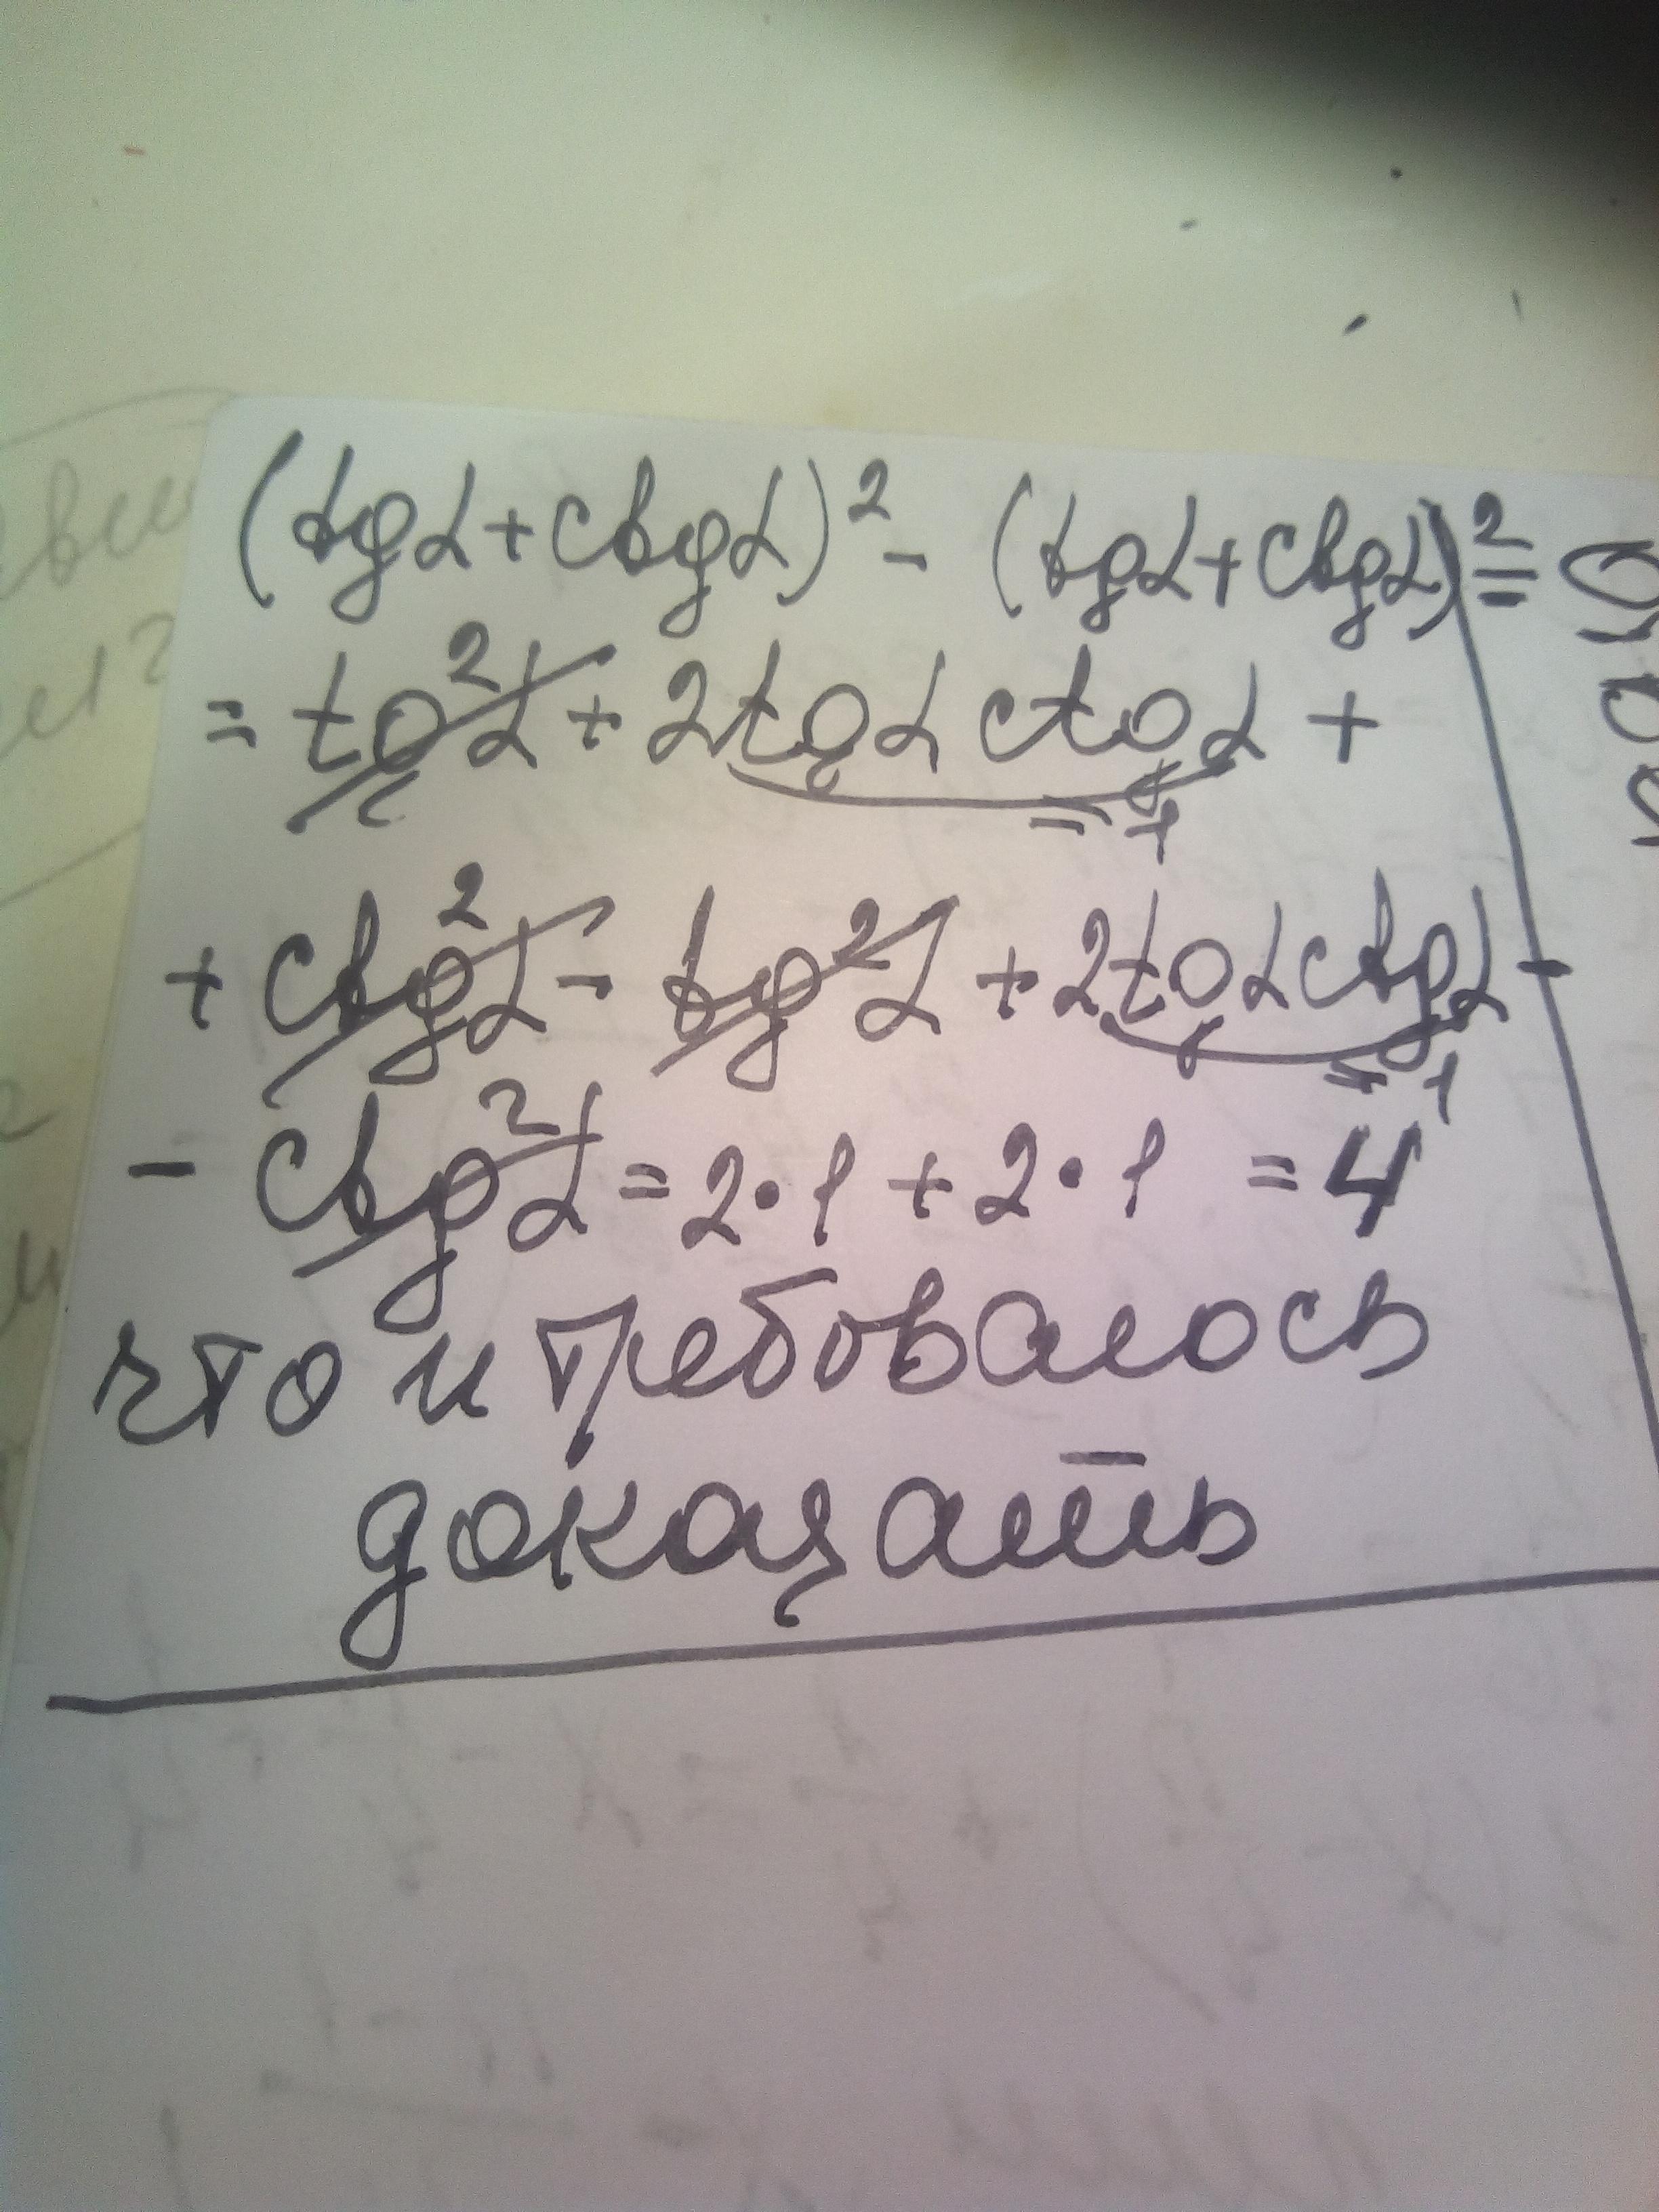 (tgα+ctgα)² - (tgα+ctgα)² =
= tg²α + 2tgα ctgα +
= 1
+ ctg²α - tg²α + 2tgα ctgα -
= 1
- ctg²α = 2·1 + 2·1 = 4
что и требовалось
доказать